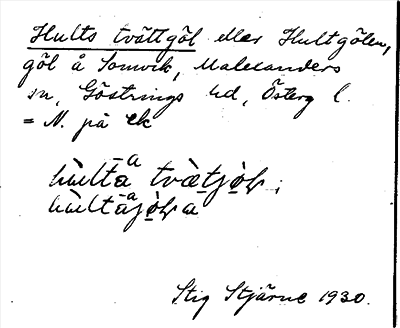 Hults tvättgöl eller Hultgölen,
göl å Somvik, Malexanders
sn, Göstrings hd, Österg l.
= N. på ek
hùlta tvæ̀tjọ̈ḷ ;
hùltajọ̈ḷa
Stig Stjärne 1930.